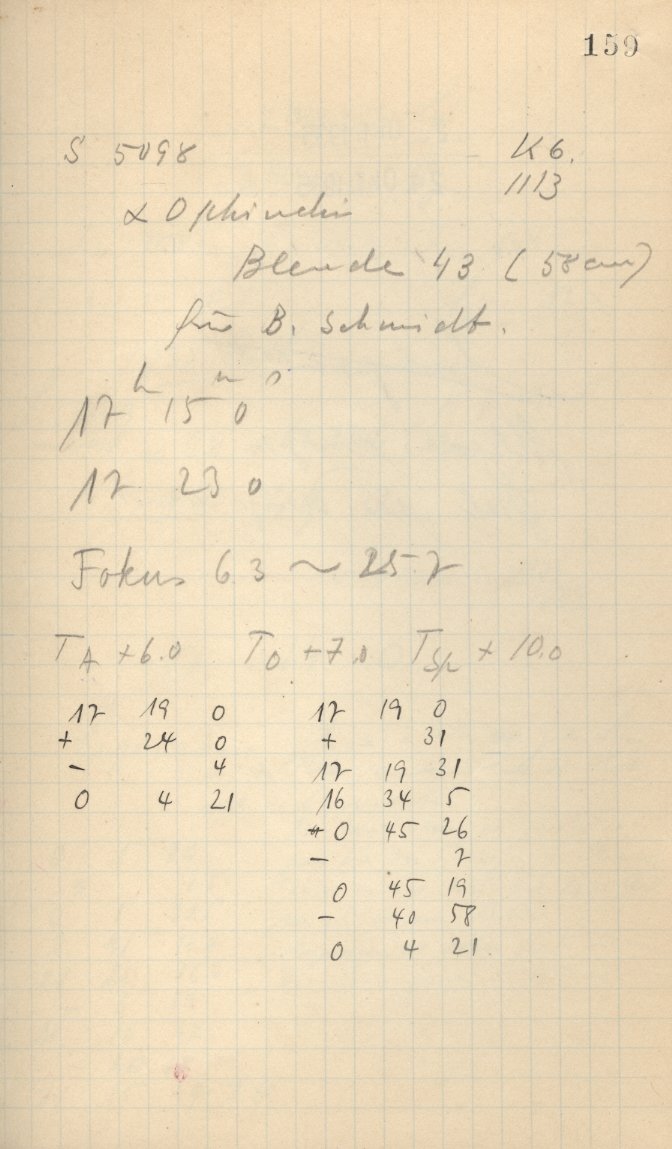 159
S 5098 K 6.
1113
α Ophiuchi
Blende 43 (58 cm)
für B. Schmidt.
17 h 15 m 0 s
17 23 0
Fokus 6.3 ~ 25.7
T_A +6.0 T_O +7.0 T_Sp + 10.0
17 19 0 17 19 0
+ 24 0 + 31
- 4 17 19 31
0 4 21 16 34 5
+ 0 45 26
- 7
0 45 19
- 40 58
0 4 21